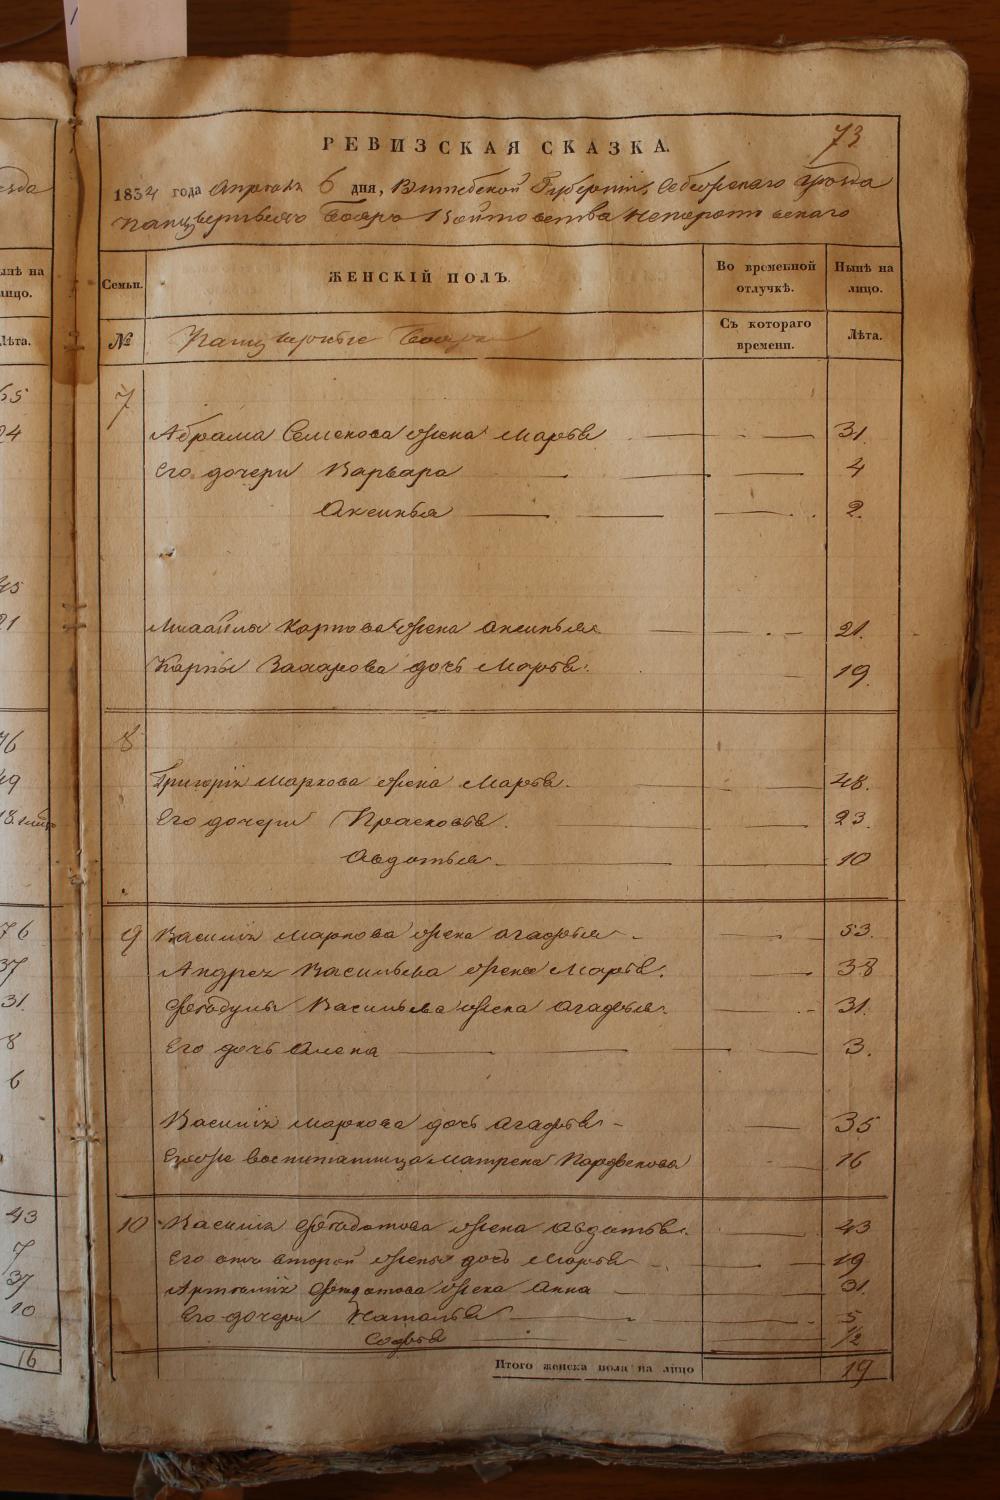 73
РЕВИЗСКАЯ СКАЗКА.
1834 года Апреля 6 дня, Витебской Губерніи, Себежскаго уезда
Панцерныхъ Бояръ Войтовства Непоротовскаго
Семьи.
ЖЕНСКІЙ ПОЛЪ.
Во временной отлучкѣ.
Нынѣ на лицо.
№
Панцерные Бояре
Съ котораго времени.
Лѣта.
7
Абрама Семенова жена Марѳа 31.
Его дочери Варвара 4
Аксинья 2.
Михайлы Карпова жена Аксинья 21.
Карпы Захарова дочь Марѳа 19.
8
Григорія Маркова жена Марѳа 48.
Его дочери Прасковья 23.
Авдотья 10
9 Василія Маркова жена Агафья 53.
Андрея Васильева жена Марѳа. 38
Васильева жена Агафья 31.
Его дочь Алена 3.
Василія Маркова дочь Агафья 35
воспитанница Матрена Парфенова 16
10 Василія Федотова жена Авдотья 43
Его отъ второй жены дочь Марѳа 19
Федотова жена Анна 31.
Его дочери Наталья 5
Софья 1/2
Итого женска пола на лицо 19
ынѣ на
лицо.
Лѣта.
65
24
45
21
76
49
18
76
37
31.
8
6
43
7
37
10
16